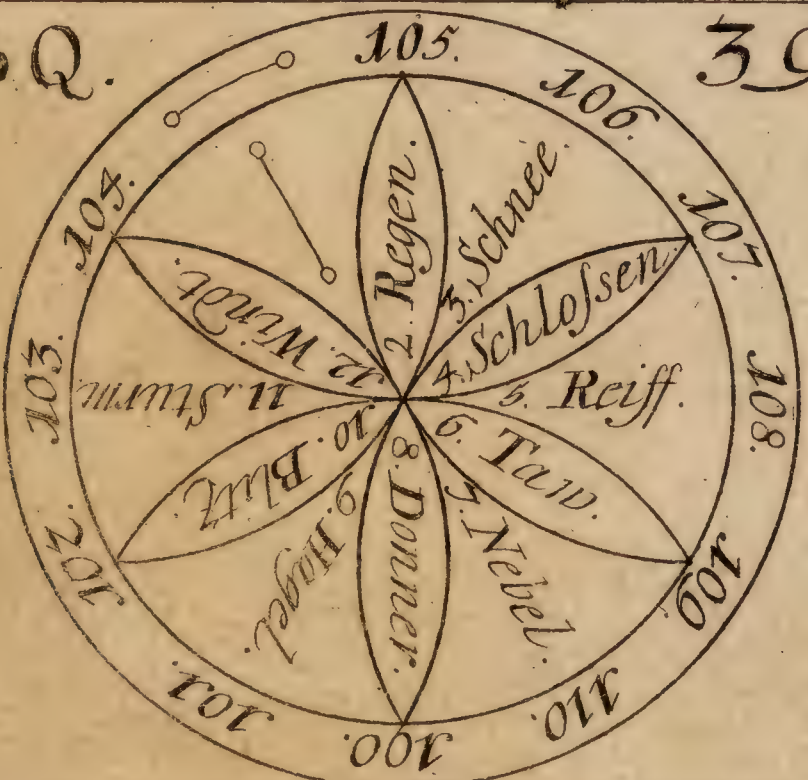 Q.
39
105.
106.
107.
108.
109.
110.
100.
101.
102.
103.
104.
2. Regen.
3. Schnee.
4. Schloſsen.
5. Reiff.
6. Taw.
7. Nebel.
8. Donner.
9. Hagel.
10. Blitz.
11. Sturm.
12. Windt.